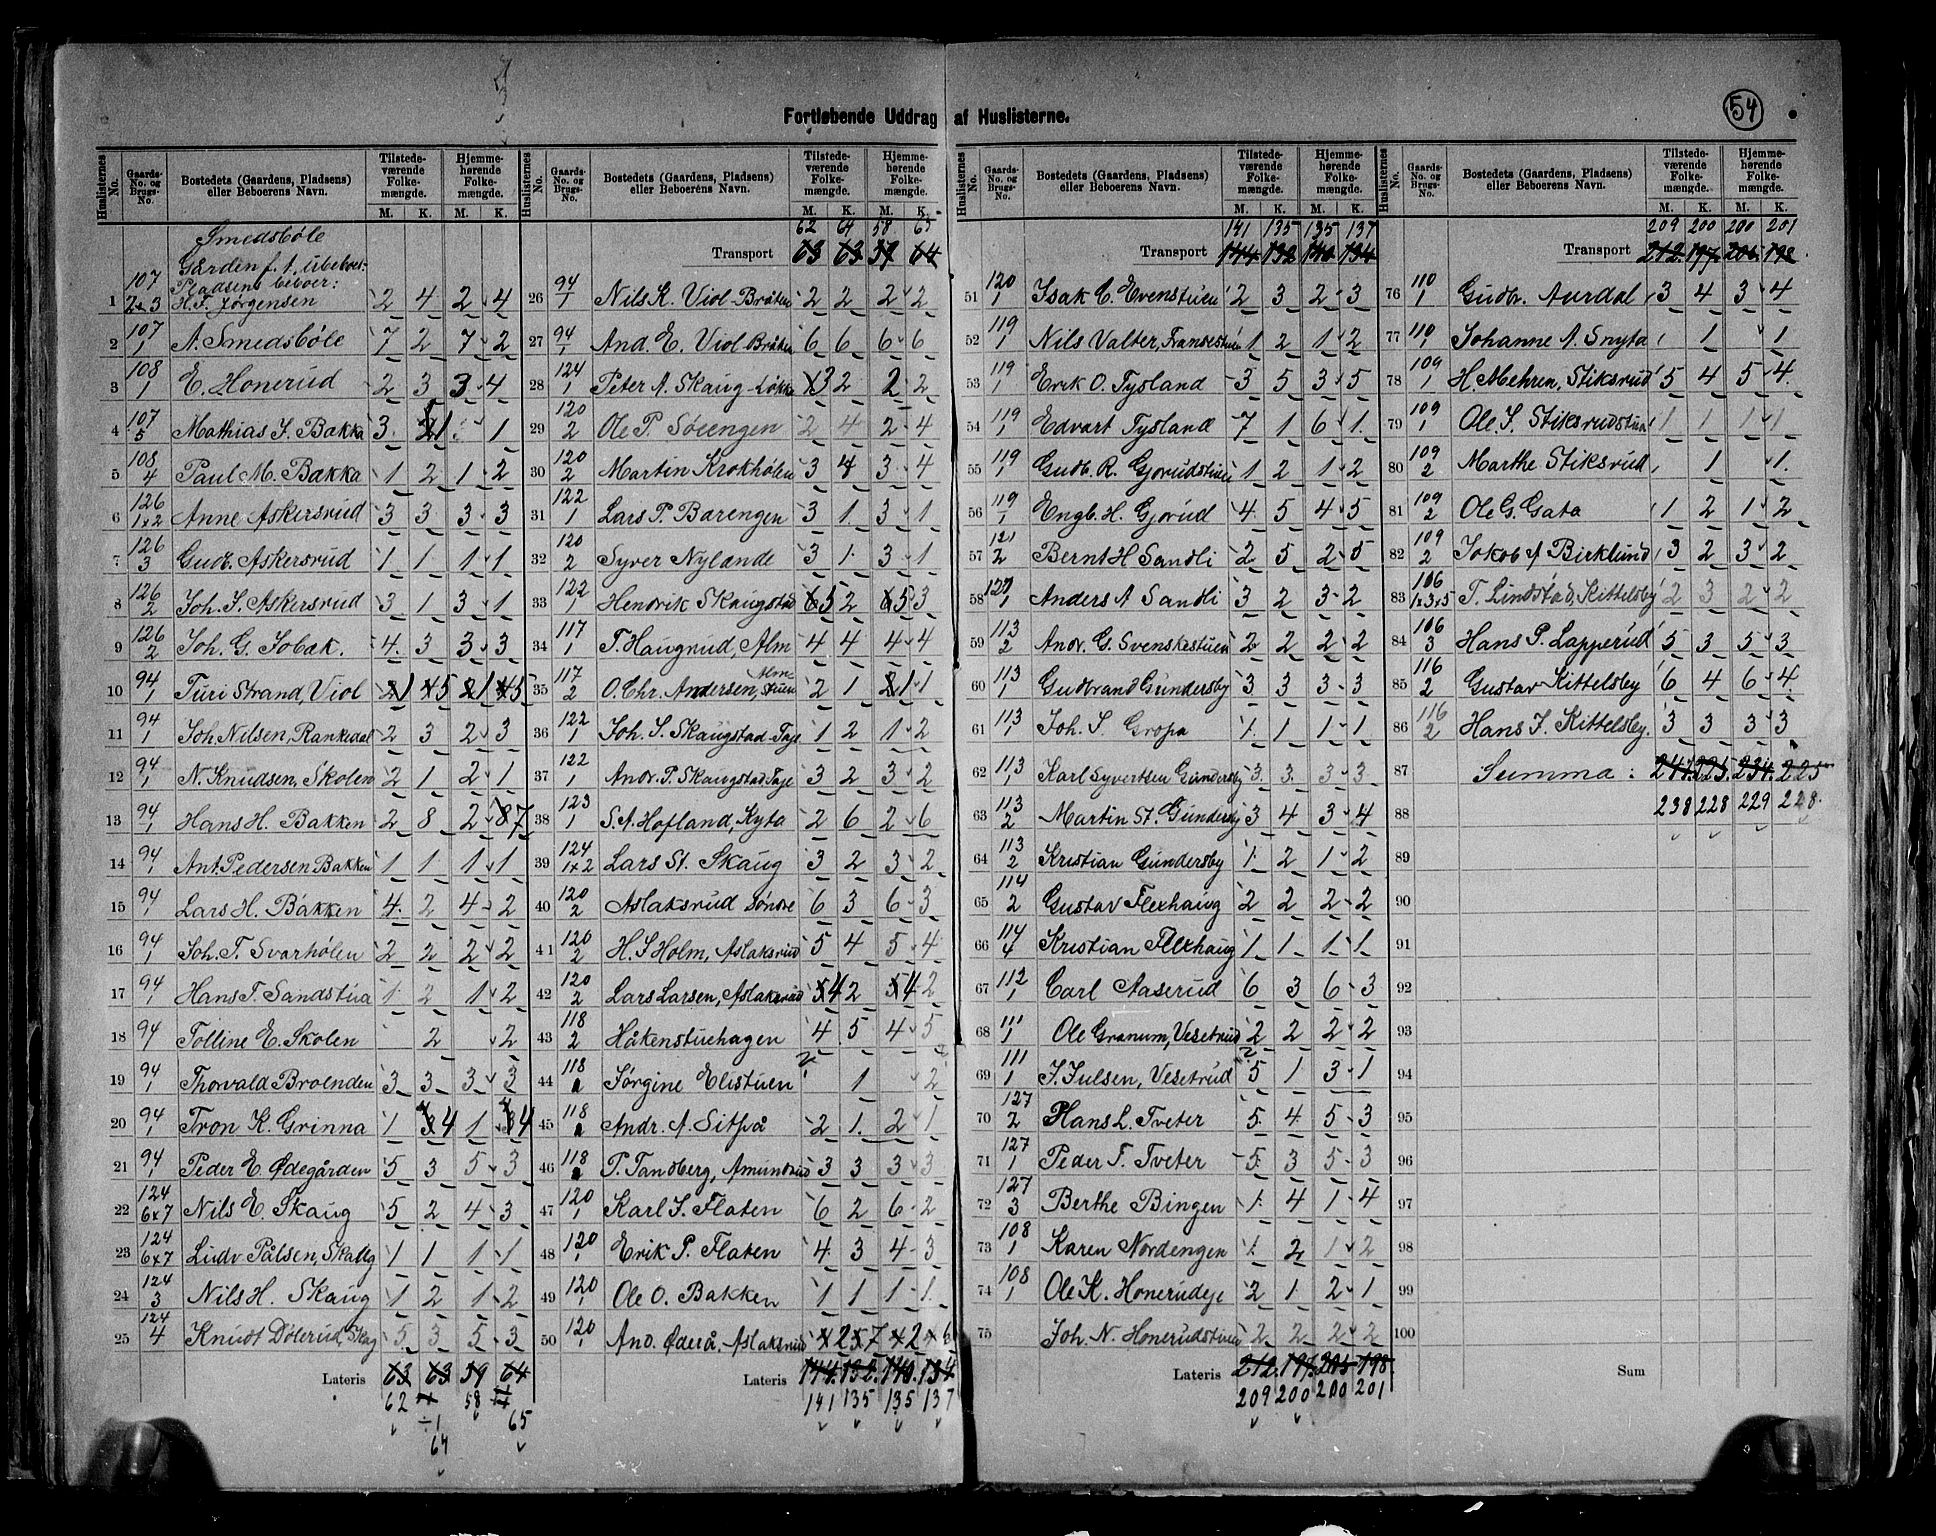 Fortløbende Uddrag af Huslisterne.
54
Huslisternes No. | Gaards-No. og Brugs-No. | Bostedets (Gaardens, Pladsens) eller Beboerens Navn. | Tilstedeværende Folkemængde. M. K. | Hjemmehørende Folkemængde. M. K.
Smedsbøle
Gården f. t. ubeboet.
Pladsens beboer:
1 107/2&3 H. J. Jørgensen 2 4 2 4
2 107/1 A. Smedsbøle 7 2 7 2
3 108/1 E. Honerud 2 3 3 4
4 107/5 Mathias J. Bakka 3 1 3 1
5 108/4 Paul M. Bakka 1 2 1 2
6 126/1x2 Anne Askersrud 3 3 3 3
7 126/3 Gudb. Askersrud 1 1 1 1
8 126/2 Joh. J. Askersrud 3 1 3 1
9 126/2 Joh. G. Jobak. 4 3 3 3
10 94/1 Turi Strand, Viol 1 5 1 5
11 94/1 Joh. Nilsen, Rankedal 2 3 2 3
12 94/1 N. Knudsen, Skolen 2 1 2 1
13 94/1 Hans H. Bakken 2 8 2 7
14 94/1 Ant. Pedersen Bakken 1 1 1 1
15 94/1 Lars H. Bakken 4 2 4 2
16 94/1 Joh. T. Svarhølen 2 2 2 2
17 94/1 Hans T. Sandstua 1 2 1 2
18 94/1 Tolline E. Skolen 2 2
19 94/1 Thorvald Broenden 3 3 3 3
20 94/1 Tron K. Grinna 1 4 1 4
21 94/1 Peder E. Ødegården 5 3 5 3
22 124/6x7 Nils E. Skaug 5 2 4 3
23 124/6x7 Ludv Pålsen, Skaug 1 1 1 1
24 124/3 Nils H. Skaug 1 2 1 2
25 124/4 Knudt Dølerud, Skag 5 3 5 3
Lateris 63 63 59 64
62 58 65
÷1
64
62 64 58 65
Transport 63 63 59 64
26 94/1 Nils K. Viol-Bråten 2 2 2 2
27 94/1 And. E. Viol-Bråten 6 6 6 6
28 124/1 Peter A. Skaug-Løkke 3 2 2 2
29 120/2 Ole P. Søengen 2 4 2 4
30 120/2 Martin Krokhølen 3 4 3 4
31 122/1 Lars P. Barengen 3 1 3 1
32 120/2 Syver Nylande 3 1 3 1
33 122/1 Hendrik Skaugstad 5 2 5 3
34 117/1 T. Haugrud, Alm 4 4 4 4
35 117/2 O. Chr. Andersen, Almestuen 2 1 1 1
36 122/1 Joh. S. Skaugstad-Eje 1 2 1 2
37 122/1 Andr. P. Skaugstad Eje 3 2 3 2
38 123/1 S. A. Hofland, Kyta 2 6 2 6
39 124/1x2 Lars St. Skaug 3 2 3 2
40 120/2 Aslaksrud Søndre 6 3 6 3
41 120/2 H. S Holm, Aslaksrud 5 4 5 4
42 120/2 Lars Larsen, Aslaksrud 4 2 4 2
43 118/2 Håkenstuehagen 4 5 4 5
44 118 Jørgine Elistuen 1 2
45 118 Andr. A. Sitpå 2 1 2 1
46 118 P. Tandberg, Amundrud 3 3 3 3
47 120/1 Karl J. Flaten 6 2 6 2
48 120/1 Erik P. Flaten 4 3 4 3
49 120/1 Ole O. Bakken 1 1 1 1
50 120/1 And. Øderå, Aslaksrud 2 7 2 6
Lateris 144 132 140 134
141 135 135 137
141 135 135 137
Transport 144 132 140 134
51 120/1 Isak C. Evenstuen 2 3 2 3
52 119/1 Nils Valter, Fransestuen 1 2 1 2
53 119/1 Erik O. Tysland 3 5 3 5
54 119/1 Edvart Tysland 7 1 6 1
55 119/1 Gudb. R. Gjorudstuen 1 2 1 2
56 119/1 Engb. H. Gjorud 4 5 4 5
57 121/2 Bernt H Sandli 2 5 2 5
58 122/1 Anders A Sandli 3 2 3 2
59 113/2 Andr. G. Svenskestuen 2 2 2 2
60 113/1 Gudbrand Gundersby 3 3 3 3
61 113/1 Joh. S. Gropa 1 1 1 1
62 113/1 Karl Syvertsen Gundersby 3 3 3 3
63 113/2 Martin St. Gundersby 3 4 3 4
64 113/2 Kristian Gundersby 1 2 1 2
65 114/2 Gustav Flexhaug 2 2 2 2
66 114/4 Kristian Flexhaug 1 1 1 1
67 112/1 Carl Aaserud 6 3 6 3
68 111/1 Ole Granum, Vesetrud 2 2 2 2
69 111/1 J. Julsen, Vesetrud 5 1 3 1
70 127/2 Hans L. Tveter 5 4 5 3
71 127/1 Peder T. Tveter 5 3 5 3
72 127/3 Berthe Bingen 1 4 1 4
73 108/1 Karen Nordengen 1 2 1 2
74 108/1 Ole K. Honerudeje 2 1 2 1
75 Joh. N. Honerudstuen 2 2 2 2
Lateris 212 197 205 198
209 200 200 201
209 200 200 201
Transport 212 197 205 198
76 110/1 Gudbr. Aurdal 3 4 3 4
77 110/1 Johanne A. Snyta 1 1
78 109/1 H. Mehren, Stiksrud 5 4 5 4
79 109/1 Ole J. Stiksrudstua 1 1 1 1
80 109/2 Marthe Stiksrud 1 1
81 109/2 Ole G. Gata 1 2 1 2
82 109/2 Jakob A Birklund 3 2 3 2
83 106/1x3x5 T. Lindstad, Kittelsby 2 3 2 2
84 106/3 Hans P. Lapperud 5 3 5 3
85 116/2 Gustav Kittelsby 6 4 6 4
86 116/2 Hans J. Kittelsby. 3 3 3 3
87 Summa: 241 225 234 225
88 238 228 229 228.
89
90
91
92
93
94
95
96
97
98
99
100
Sum